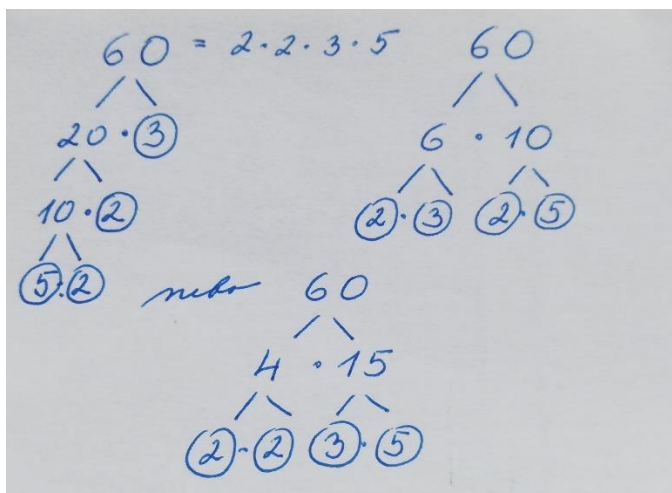 60 = 2·2·3·5
20·3
10·2
5·2
60
6·10
2·3 2·5
nebo
60
4·15
2·2 3·5